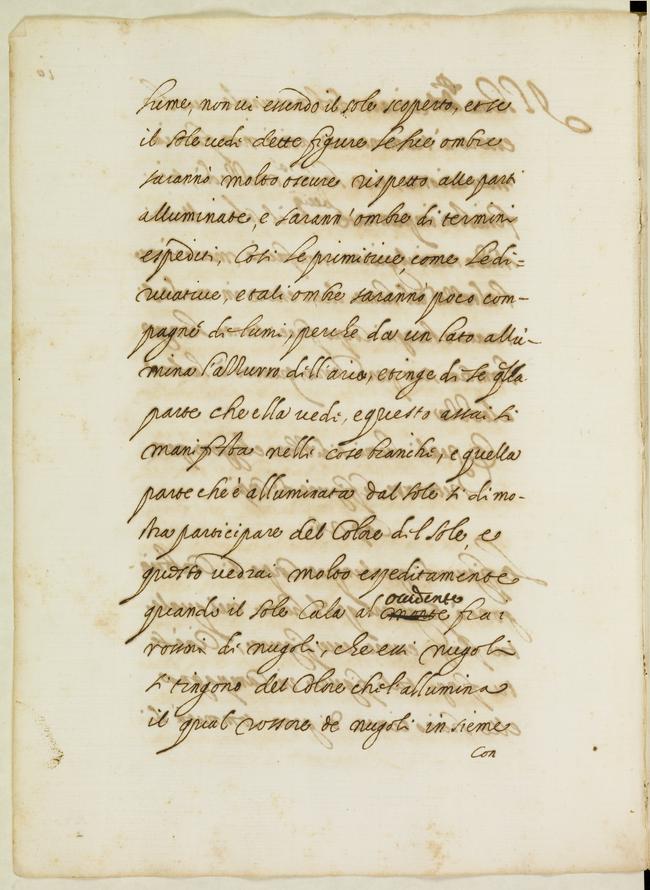 lume, non vi essendo il sole scoperto, et se
il sole vede dette figure le sue ombre
saranno molto oscure rispetto alle parti
alluminate, e sarann'ombre di termini
espediti, Così le primitive, come le di=
rivative, e tali ombre saranno poco com-
pagne de lumi, perche da un lato allu-
mina l'azzurro dell'aria, e tinge di se qlla
parte che ella vede, e questo assai si
manifesta nelle cose bianche, e quella
parte che è alluminata dal sole si dimo-
stra participare del Colore del sole, e
questo vedrai molto espeditamente
quando il sole Cala al occidente fra i
rossori di nugoli, che essi nugoli
si tingono del Colore che l'allumina
il qual rossore de nugoli insieme
Con